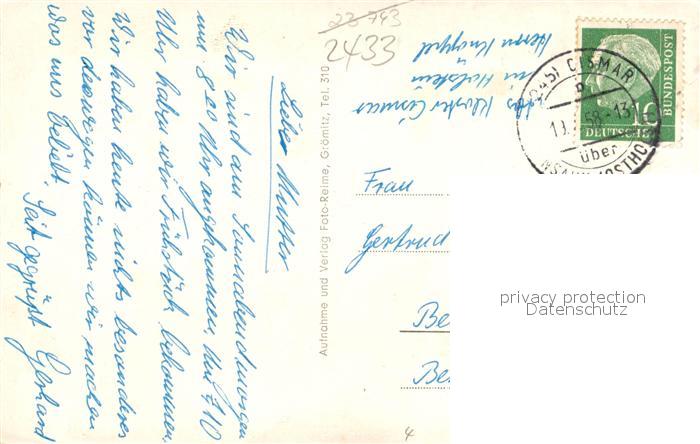 Liebe Mutter
Wir sind am Sonnabendmorgen
um 8 00 Uhr angekommen. Um 7 10
Uhr haben wir Frühstück bekommen.
Wir haben heute nichts besonderes
vor deswegen können wir machen
was uns beliebt. Seit gegrüßt Gerhard
Aufnahme und Verlag Foto-Reime, Grömitz, Tel. 310
22 743
2433
Kloster Cismar
in Holstein
Herrn Knoppel
CISMAR
über
58-13
10
DEUTSCHE
BUNDESPOST
Frau
Gertrud
Be
Be
4
privacy protection
Datenschutz